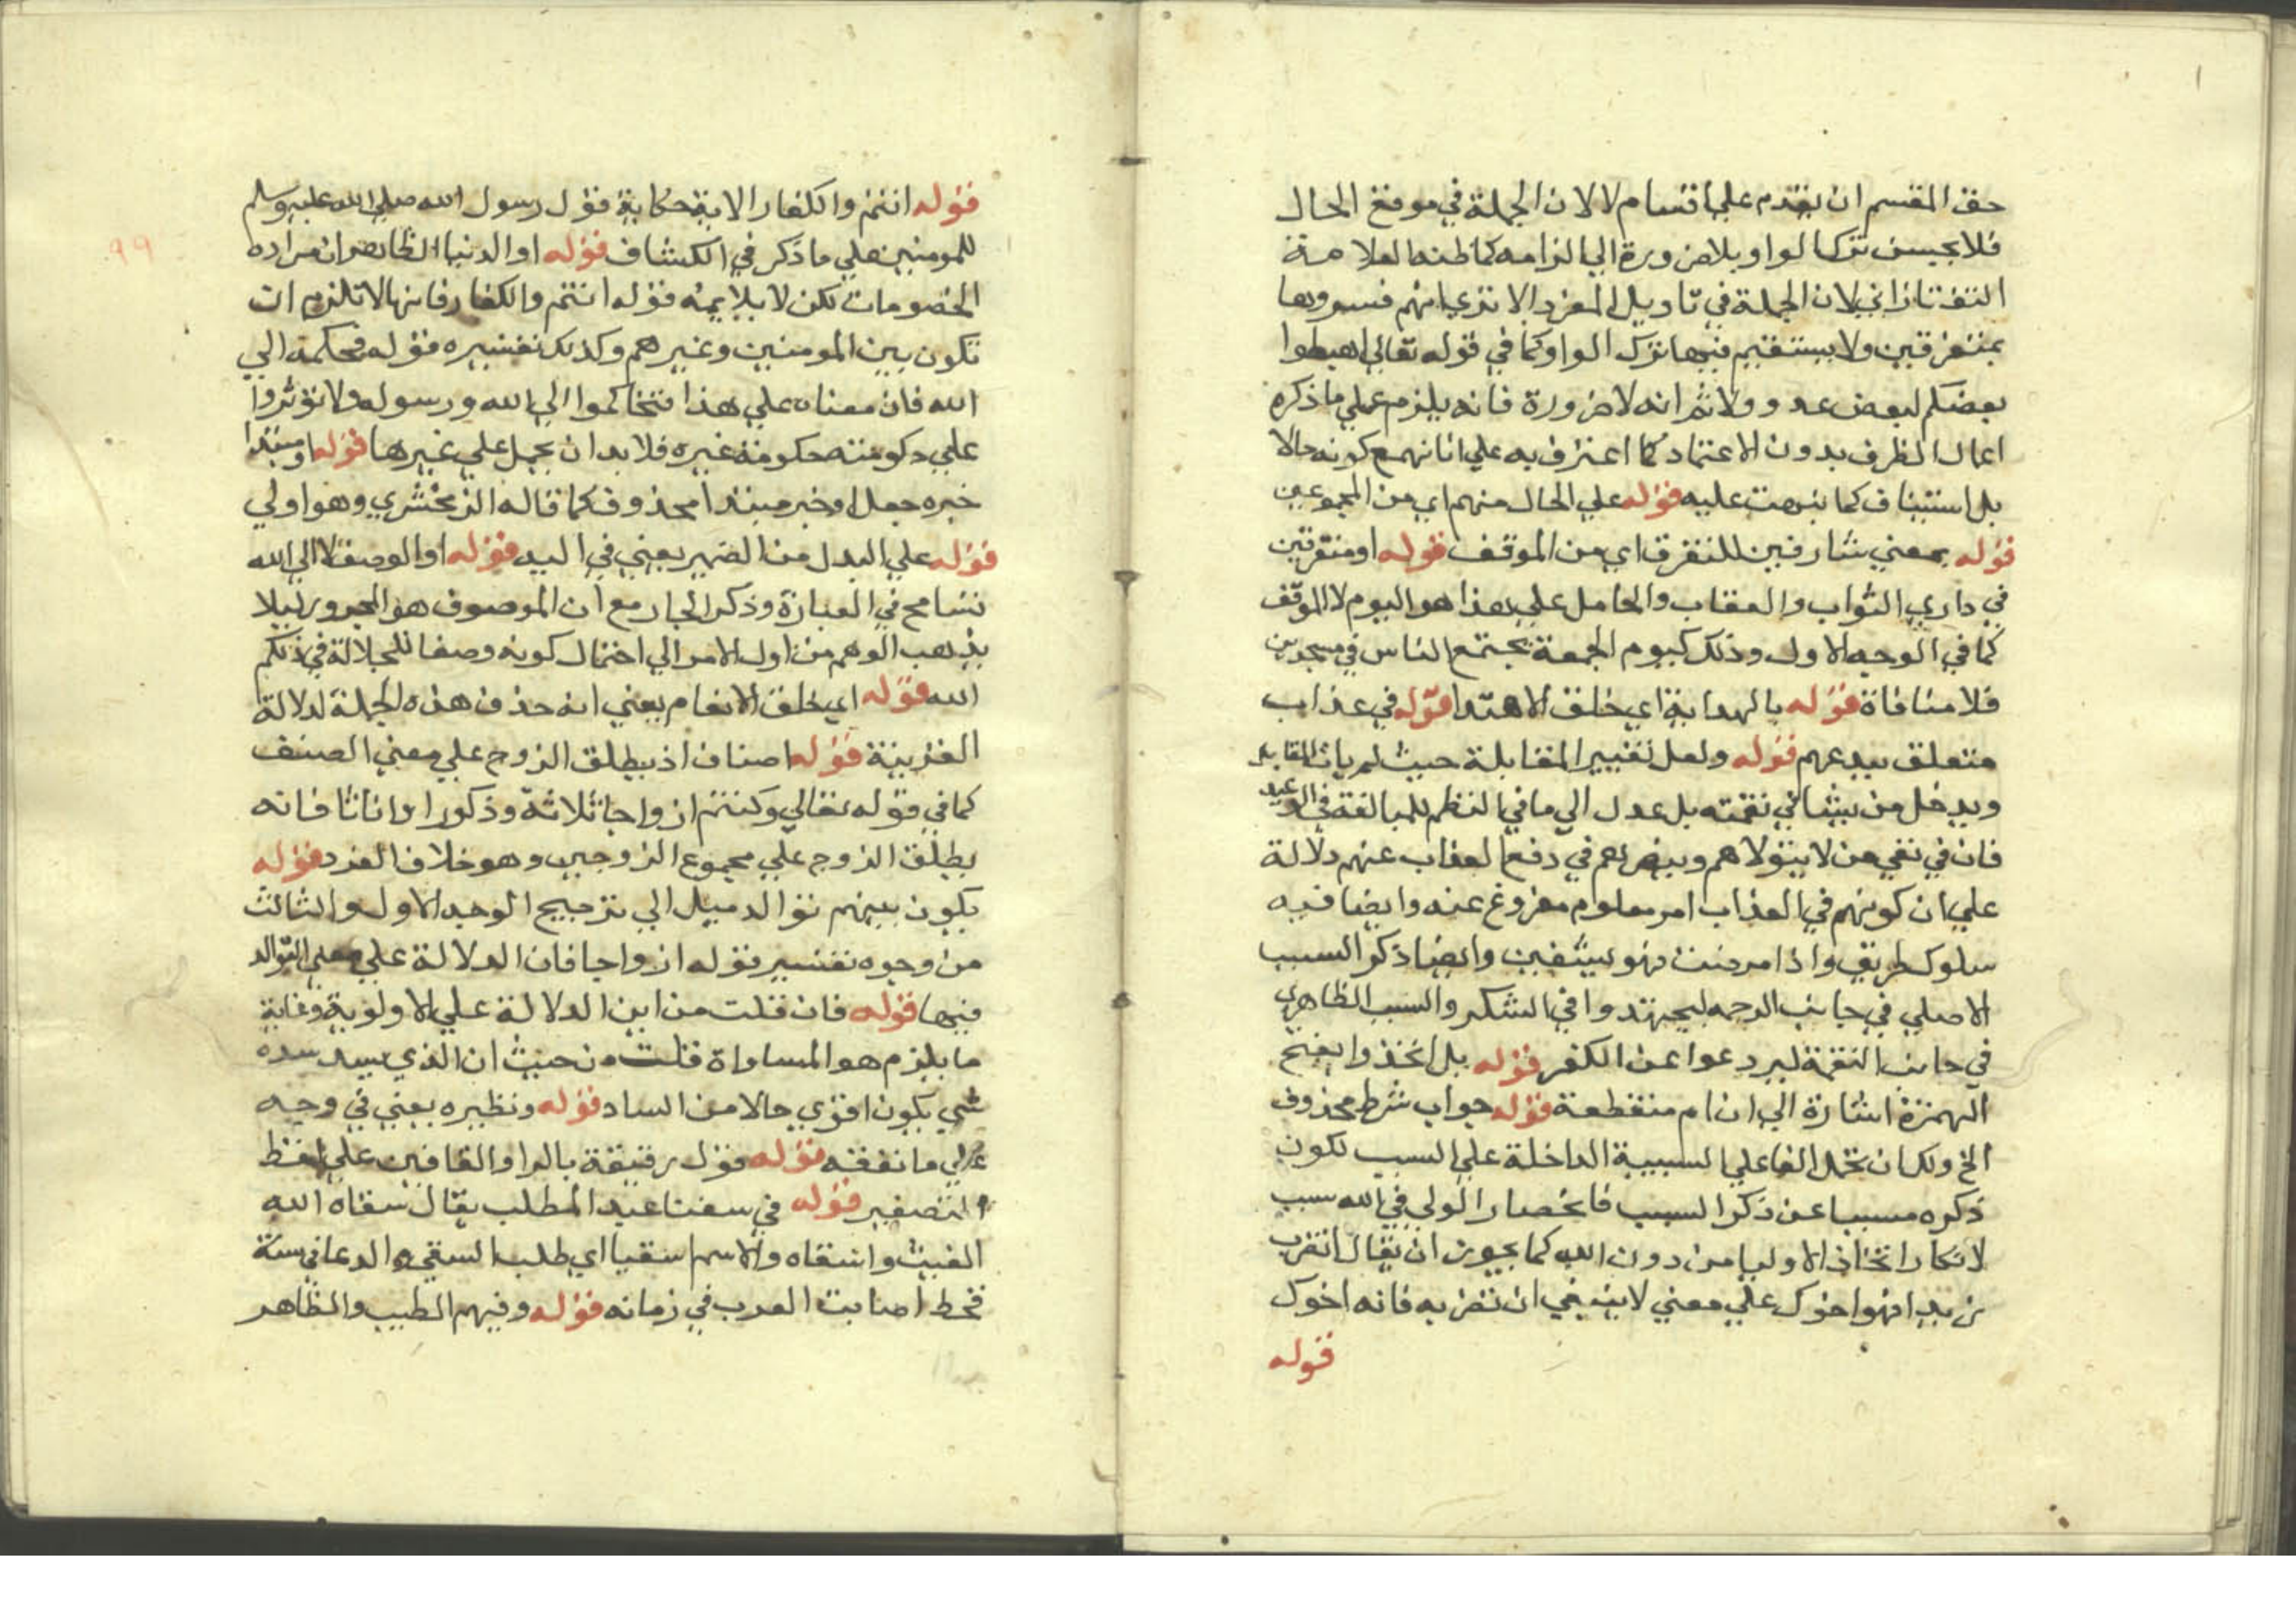 حق المقسم ان يقدم علي اقسام لا لان الجملة في موقع الحال
فلا يحسن ترك الواو بلا ضرورة الي التزامه كما ظنه العلامة
التفتازاني لان الجملة في تاويل المفرد الا تري انهم فسروها
بمتفرقين ولا يستقيم فيها ترك الواو كما في قوله تعالي اهبطوا
بعضكم لبعض عدو ولا ثم انه لا ضرورة فانه يلزم علي ما ذكره
اعمال الظرف بدون الاعتماد كما اعترف به علي انا نمنع كونه حالا
بل استيناف كما نبهت عليه قوله علي الحال منهم اي من المجموعين
قوله بمعني مشارفين للتفرق اي من الموقف قوله او متفرقين
في داري الثواب والعقاب والحامل علي هذا هو اليوم لا الموقف
كما في الوجه الاول وذلك كيوم الجمعة يجتمع الناس في مسجدين
فلا منافاة قوله بالهداية اي خلق الاهتدا قوله في عذاب
متعلق بيدعهم قوله ولعل تغيير المقابلة حيث لم يات المقابل
ويدخل من يشا في نقمته بل عدل الي ما في النظم للمبالغة في الوعيد
فان في نفي من لا يتولاهم وينصرهم في دفع العذاب عنهم دلالة
علي ان كونهم في العذاب امر معلوم مفروغ عنه وايضا فيه
سلوك طريق واذا مرضت فهو يشفين وايضا ذكر السبب
الاصلي في جانب الرحمة ليجتهدوا في الشكر والسبب الظاهري
في جانب النقمة ليردعوا عن الكفر قوله بل اتخذوا بفتح
الهمزة اشارة الي ان ام منقطعة قوله جواب شرط محذوف
الخ ولك ان تحمل الفا علي السببية الداخلة علي السبب لكون
ذكره مسببا عن ذكر السبب فانحصار الولي في الله سبب
لانكار اتخاذ الاوليا من دون الله كما يجوز ان يقال اتضرب
زيدا فهو اخوك علي معني لا ينبغي ان تضربه فانه اخوك
قوله
٩٩
قوله انتم والكفار الاية حكاية قول رسول الله صلي الله عليه وسلم
للمومنين علي ما ذكر في الكشاف قوله او الدنيا الظاهر ان مراده
الخصومات لكن لا يلايمه قوله انتم والكفار فانها لا تلزم ان
تكون بين المومنين وغيرهم وكذلك تفسيره قوله فحكمه الي
الله فان معناه علي هذا فتحاكموا الي الله ورسوله ولا تؤثروا
علي حكومته حكومة غيره فلا بد ان يحمل علي غيرها قوله او مبتدا
خبره جعل او خبر مبتدا محذوف كما قاله الزمخشري وهو اولي
قوله علي البدل من الضمير يعني في اليه قوله او الوصف لا الي الله
تسامح في العبارة وذكر الجار مع ان الموصوف هو المجرور ليلا
يذهب الوهم من اول الامر الي احتمال كونه وصفا للجلالة في ذلكم
الله قوله اي خلق الانعام يعني انه حذف هذه الجملة لدلالة
القرينة قوله اصناف اذ يطلق الزوج علي معني الصنف
كما في قوله تعالي وكنتم ازواجا ثلاثة وذكورا واناثا فانه
يطلق الزوج علي مجموع الزوجين وهو خلاف الفرد قوله
يكون بينهم توالد ميل الي ترجيح الوجه الاول والثالث
من وجوه تفسير قوله ازواجا فان الدلالة علي معني التوالد
فيها قوله فان قلت من اين الدلالة علي الاولوية وغاية
ما يلزم هو المساواة قلت من حيث ان الذي يسد مسده
شي يكون اقوي حالا من الساد قوله ونظيره يعني في وجه
علي ما نفقه قوله قول رقيقة بالراو والقافين علي لفظ
التصغير قوله في سقنا عبد المطلب يقال سقاه الله
الغيث واسقاه والاسم اسقيا اي طلب السقي والدعا في سنة
قحط اصابت العرب في زمانه قوله وفيهم الطيب والطاهر